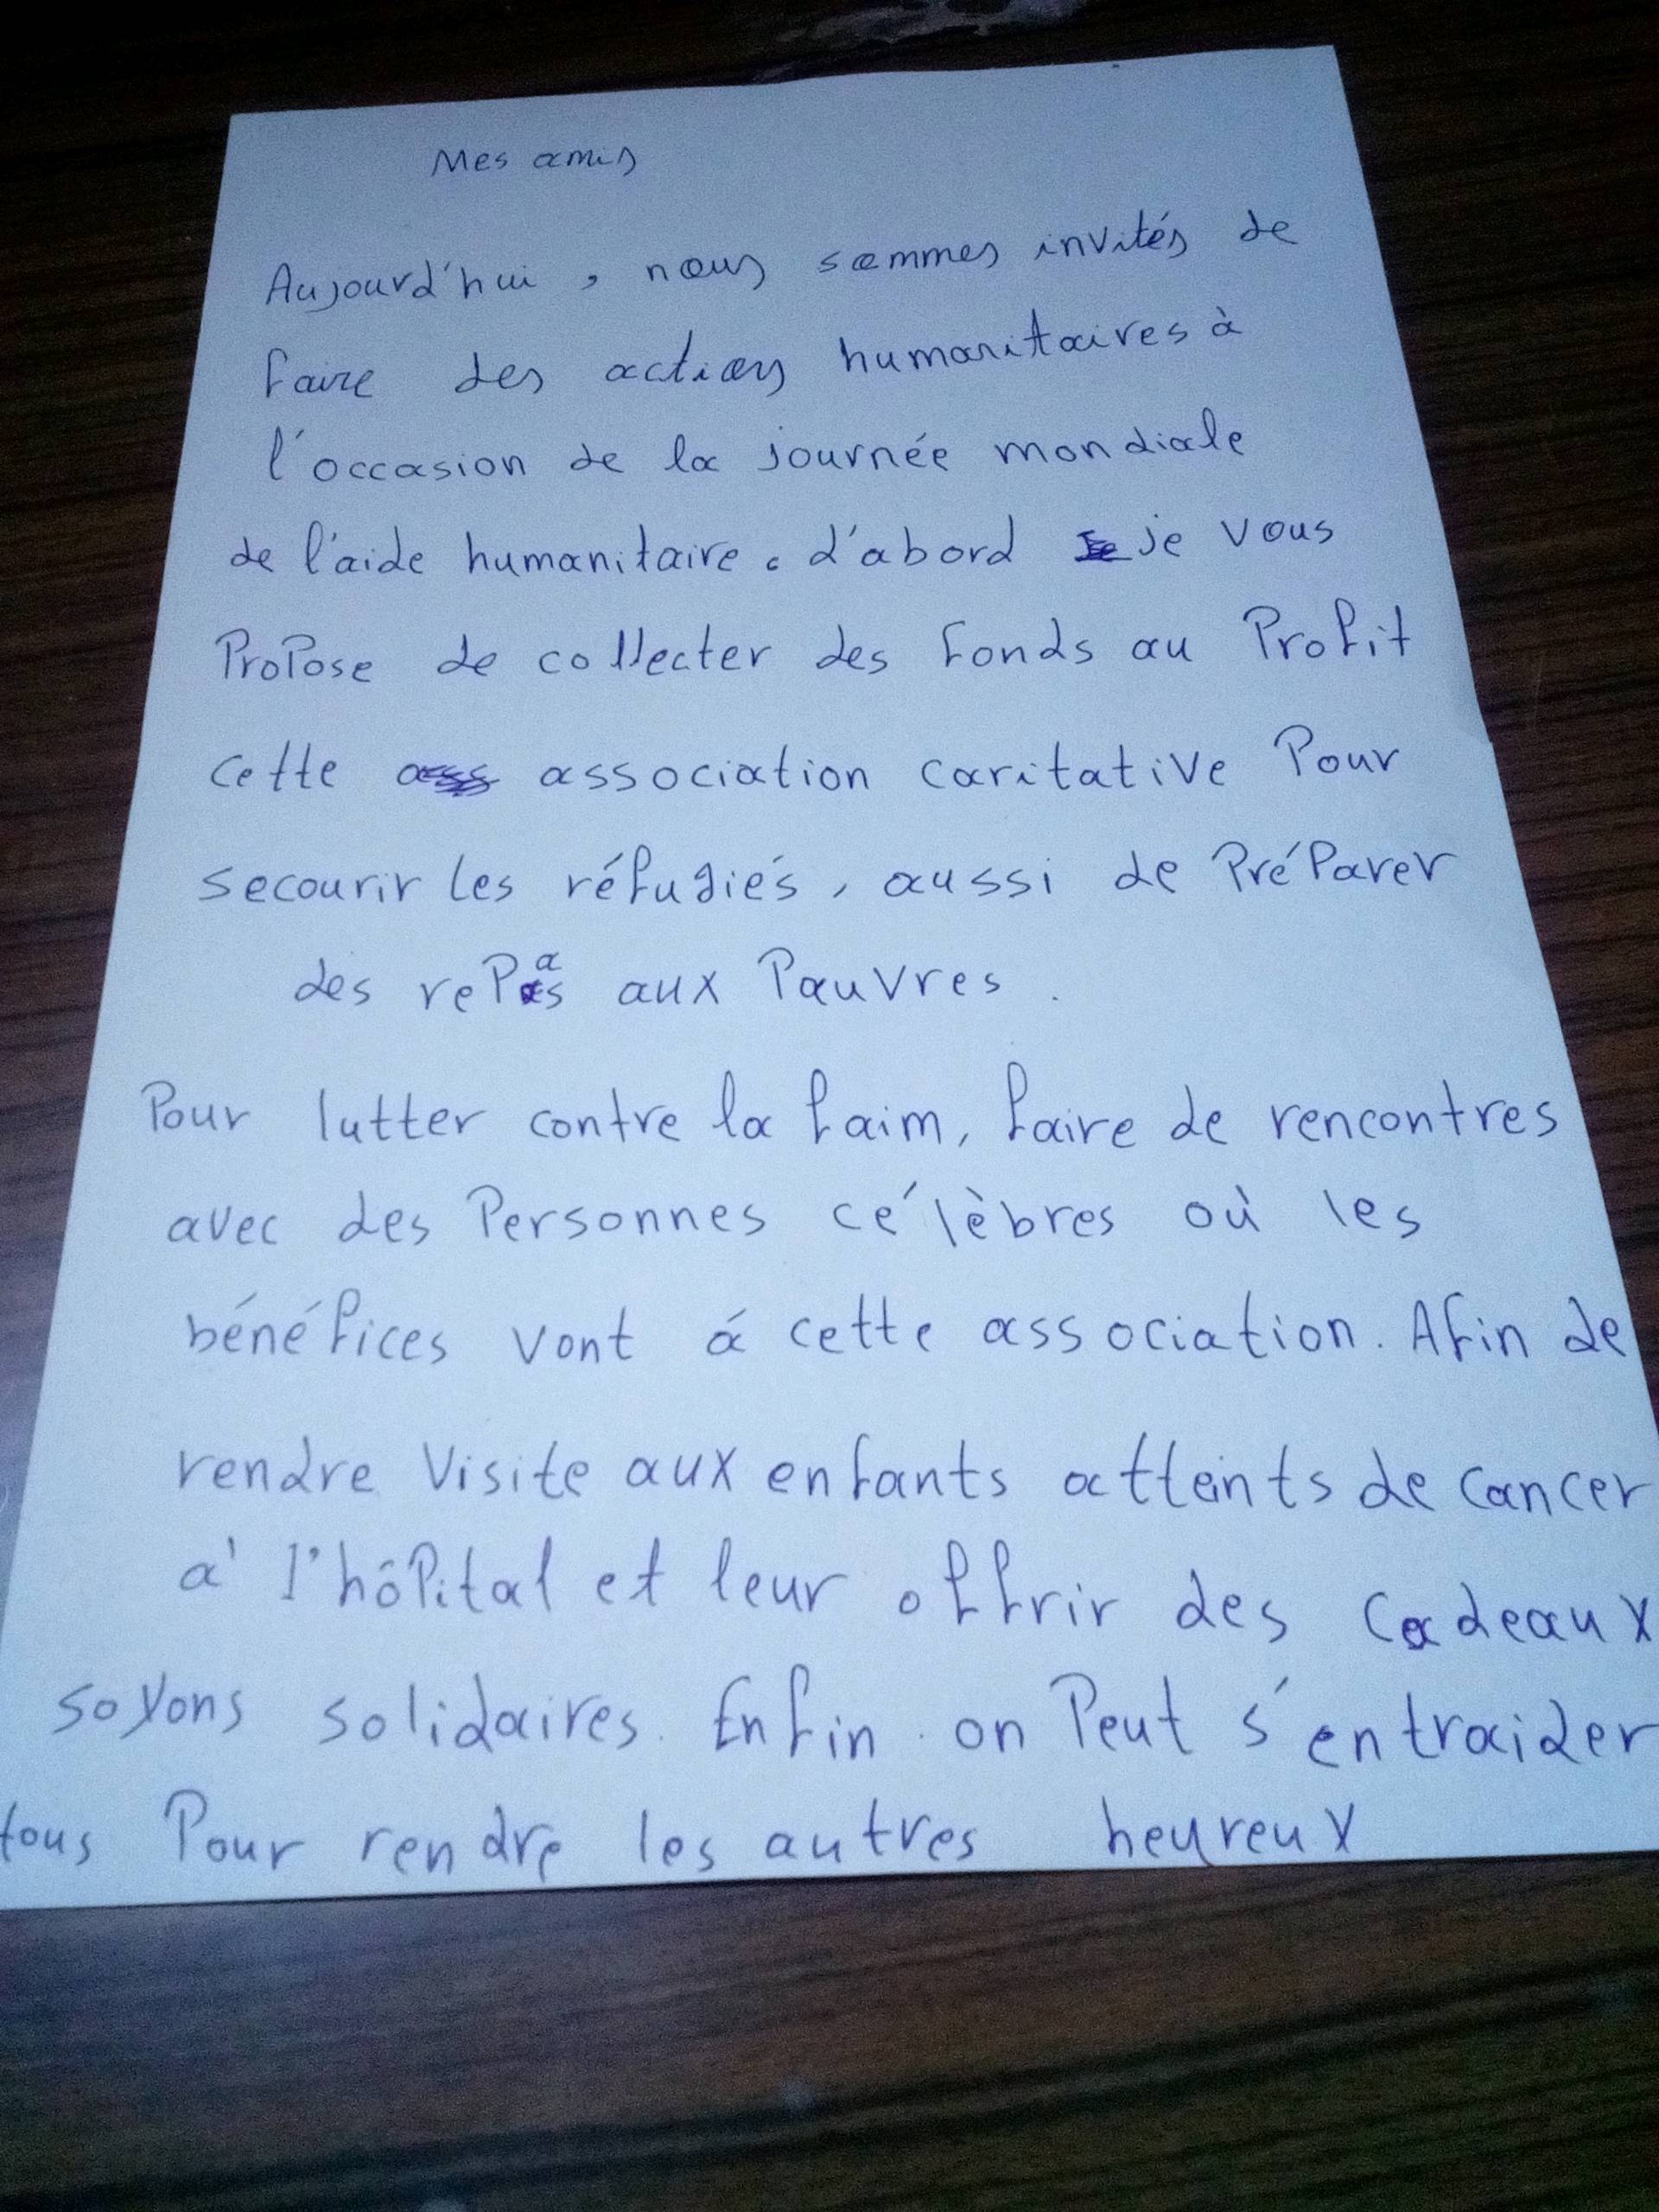 Mes amis
Aujourd'hui, nous sommes invités de
faire des actions humanitaires à
l'occasion de la journée mondiale
de l'aide humanitaire. d'abord je vous
Propose de collecter des fonds au Profit
cette association caritative Pour
secourir les réfugiés, aussi de Préparer
des repas aux Pauvres.
Pour lutter contre la faim, faire de rencontres
avec des Personnes célèbres où les
bénéfices vont á cette association. Afin de
rendre visite aux enfants atteints de cancer
à l'hôpital et leur offrir des cadeaux
soyons solidaires. Enfin on Peut s'entraider
tous Pour rendre les autres heureux